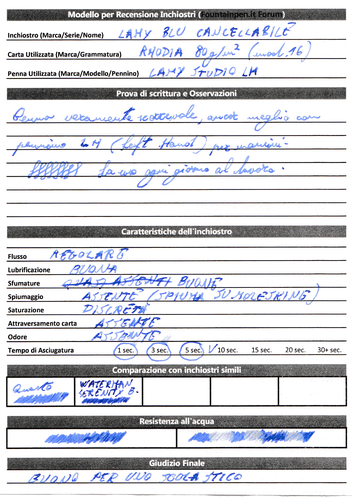 Modello per Recensione Inchiostri (Fountainpen.it Forum)
Inchiostro (Marca/Serie/Nome) LAMY BLU CANCELLABILE
Carta Utilizzata (Marca/Grammatura) RHODIA 80g/m² (mod. 16)
Penna Utilizzata (Marca/Modello/Pennino) LAMY STUDIO LH
Prova di scrittura e Osservazioni
Penna veramente scorrevole, anche meglio con
pennino LH (Left Hand) per mancini.
La uso ogni giorno al lavoro.
Caratteristiche dell'inchiostro
Flusso REGOLARE
Lubrificazione BUONA
Sfumature QUASI ASSENTI BUONE
Spiumaggio ASSENTE (SPIUMA SU MOLESKINE)
Saturazione DISCRETA
Attraversamento carta ASSENTE
Odore ASSENTE
Tempo di Asciugatura 1 sec. 3 sec. 5 sec. 10 sec. 15 sec. 20 sec. 30+ sec.
Comparazione con inchiostri simili
Questo WATERMAN
SERENITY B.
Resistenza all'acqua
Giudizio Finale
BUONO PER USO SCOLASTICO